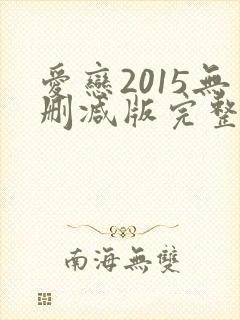 愛戀2015無
刪減版完整
南海無雙